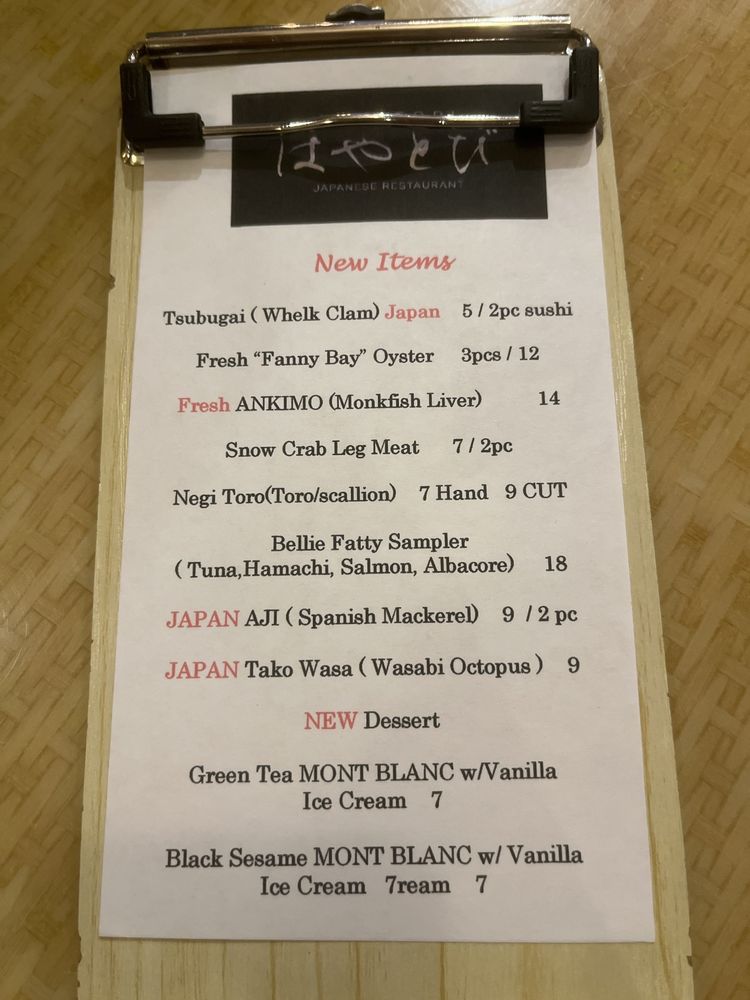 はやとび
JAPANESE RESTAURANT
New Items
Tsubugai ( Whelk Clam) Japan 5 / 2pc sushi
Fresh “Fanny Bay” Oyster 3pcs / 12
Fresh ANKIMO (Monkfish Liver) 14
Snow Crab Leg Meat 7 / 2pc
Negi Toro(Toro/scallion) 7 Hand 9 CUT
Bellie Fatty Sampler
( Tuna,Hamachi, Salmon, Albacore) 18
JAPAN AJI ( Spanish Mackerel) 9 / 2 pc
JAPAN Tako Wasa ( Wasabi Octopus ) 9
NEW Dessert
Green Tea MONT BLANC w/Vanilla
Ice Cream 7
Black Sesame MONT BLANC w/ Vanilla
Ice Cream 7ream 7